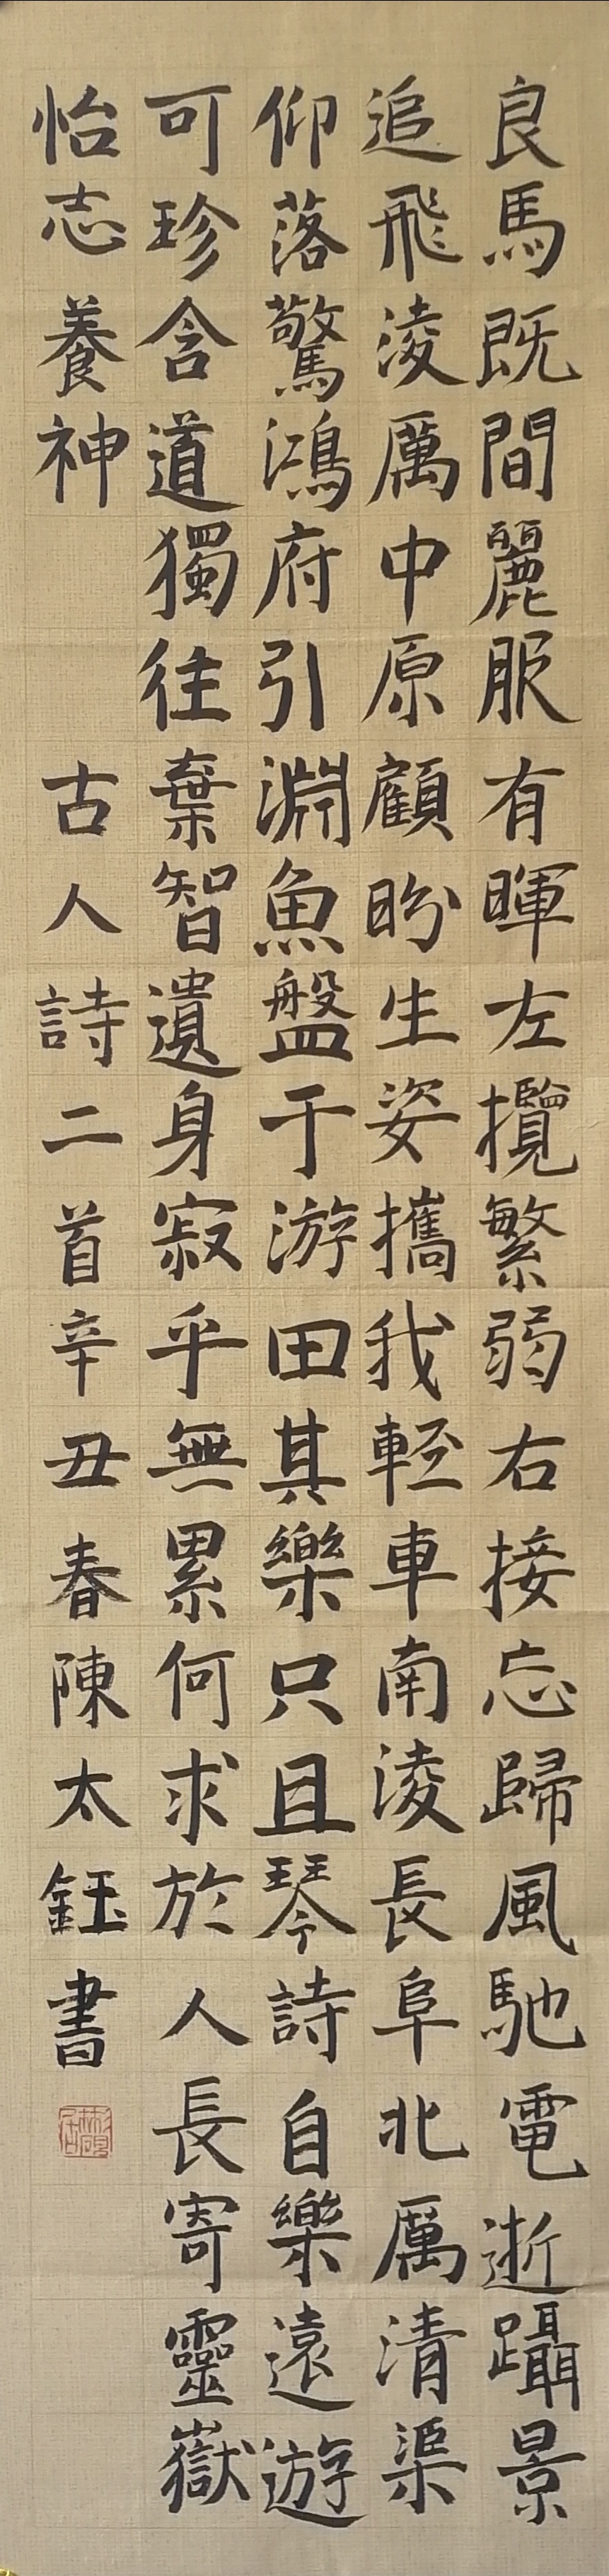 良馬既間麗服有暉左攬繁弱右接忘歸風馳電逝躡景
追飛淩厲中原顧盼生姿攜我輕車南淩長阜北厲清渠
仰落驚鴻府引淵魚盤于游田其樂只且琴詩自樂遠遊
可珍含道獨往棄智遺身寂乎無累何求於人長寄靈嶽
怡志養神
古人詩二首辛丑春陳太鈺書